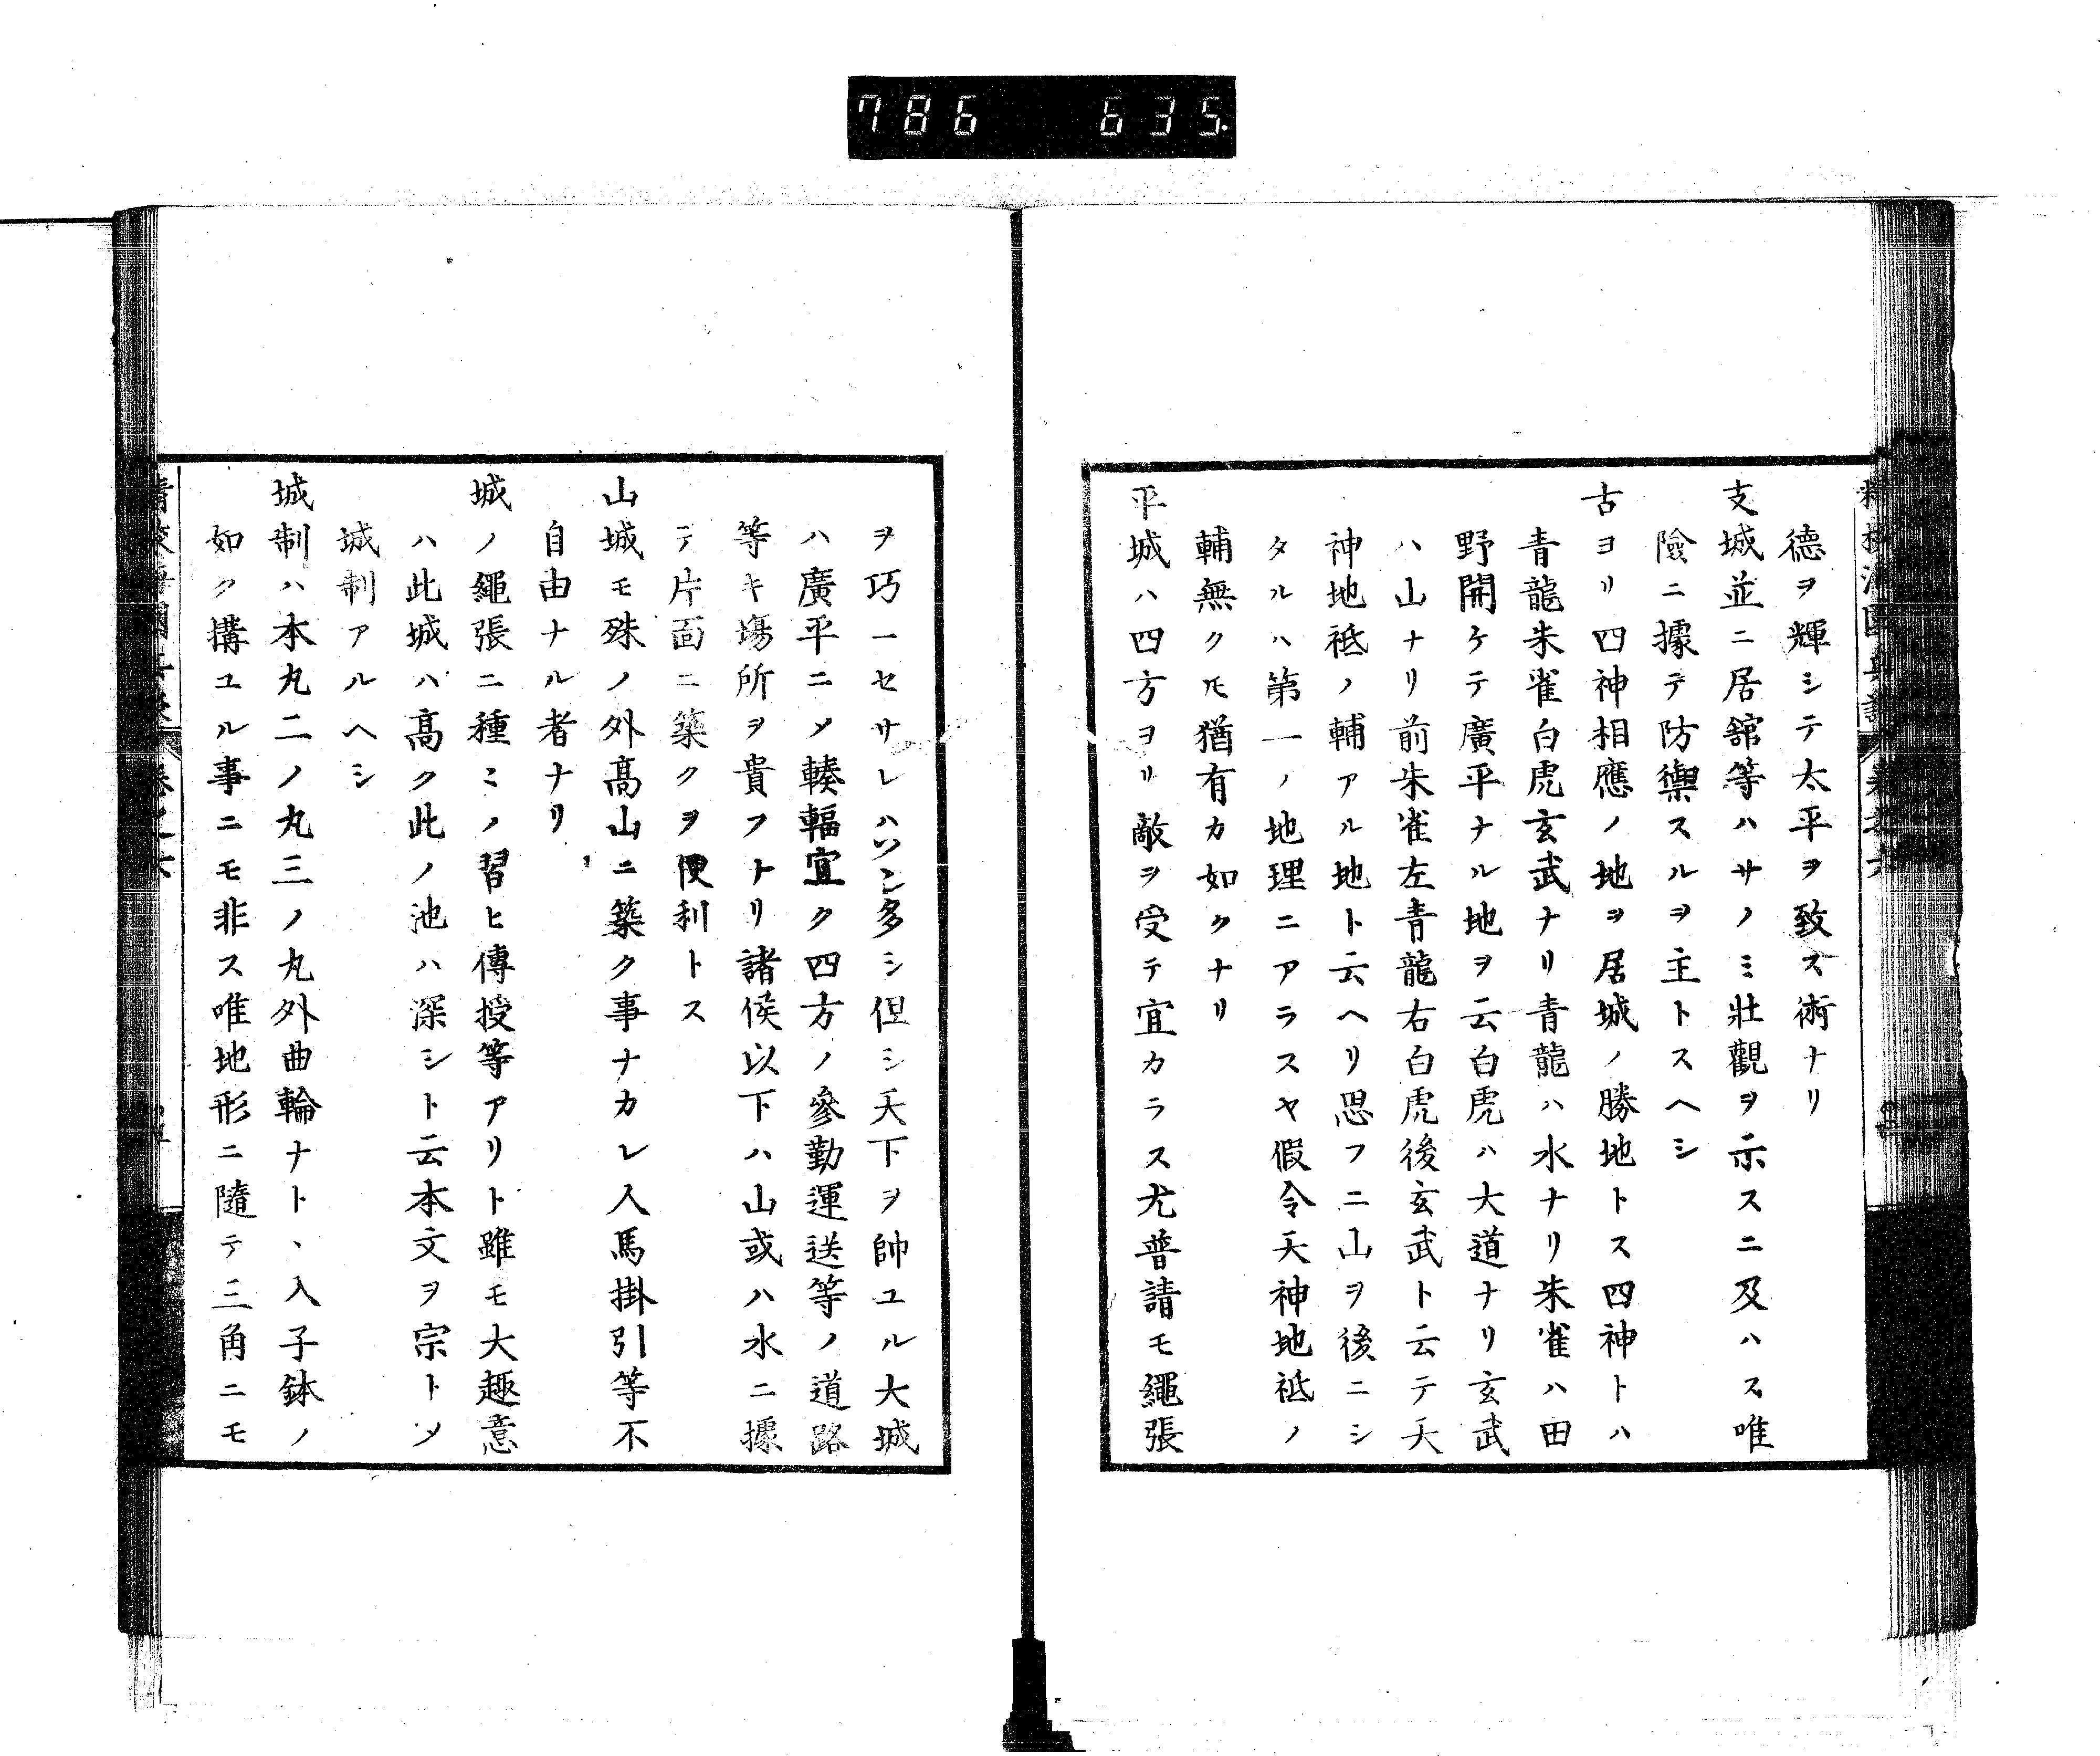 786 635
德ヲ輝シテ太平ヲ致ス術ナリ
支城並ニ居舘等ハサノミ壯觀ヲ示スニ及ハス唯
險ニ據テ防禦スルヲ主トスヘシ
古ヨリ四神相應ノ地ヲ居城ノ勝地トス四神トハ
青龍朱雀白虎玄武ナリ青龍ハ水ナリ朱雀ハ田
野開ケテ廣平ナル地ヲ云白虎ハ大道ナリ玄武
ハ山ナリ前朱雀左青龍右白虎後玄武ト云テ天
神地祇ノ輔アル地ト云ヘリ思フニ山ヲ後ニシ
タルハ第一ノ地理ニアラスヤ假令天神地祇ノ
輔無クモ猶有カ如クナリ
平城ハ四方ヨリ敵ヲ受テ宜カラス尤普請モ繩張
ヲ巧ーセサレハソン多シ但シ天下ヲ帥ユル大城
ハ廣平ニメ輳輻宜ク四方ノ參勤運送等ノ道路
等キ塲所ヲ貴フトリ諸侯以下ハ山或ハ水ニ據
テ片面ニ築クヲ便利トス
山城モ殊ノ外髙山ニ築ク事ナカレ人馬掛引等不
自由ナル者ナリ
城ノ繩張ニ種ミノ習ヒ傳授等アリト雖モ大趣意
ハ此城ハ髙ク此ノ池ハ深シト云本文ヲ宗トメ
城制アルヘシ
城制ハ本丸二ノ丸三ノ丸外曲輪ナト、入子鉢ノ
如ク搆ユル事ニモ非ス唯地形ニ隨テ三角ニモ